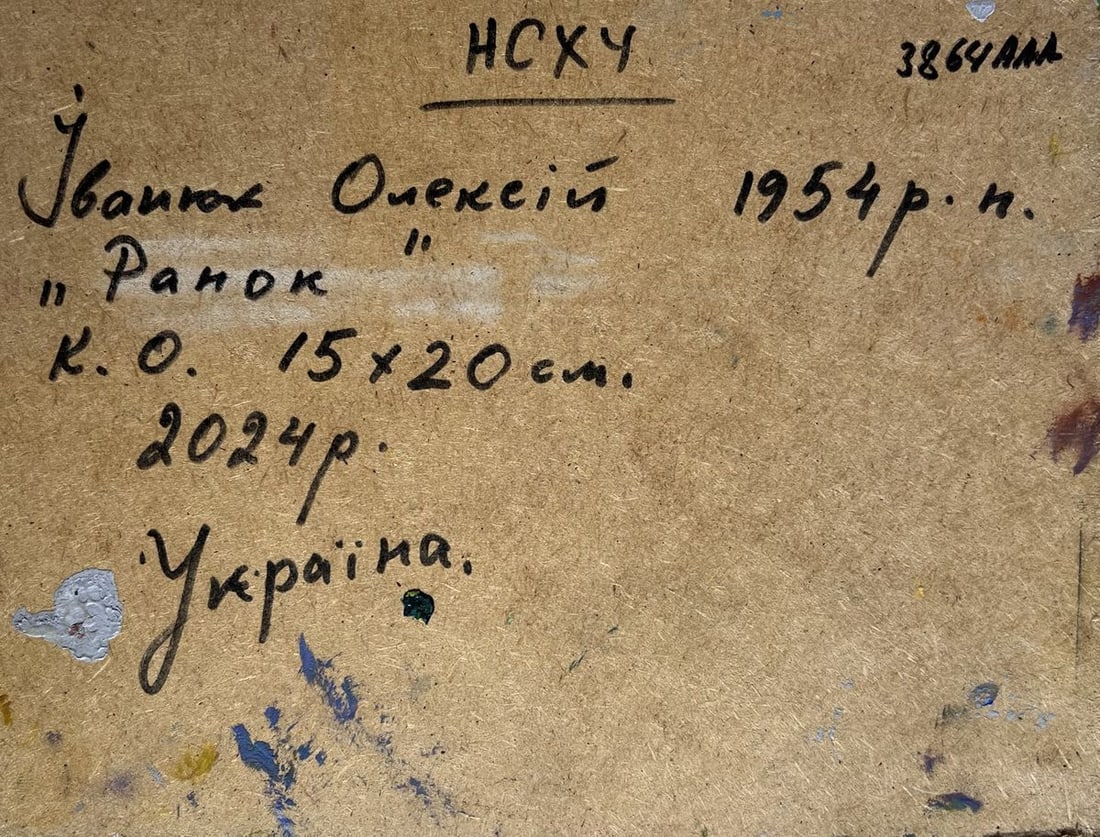 НСХУ
3864ААА
Іванюк Олексій 1954 р. н.
„Ранок"
К. О. 15х20 см.
2024 р.
Україна.